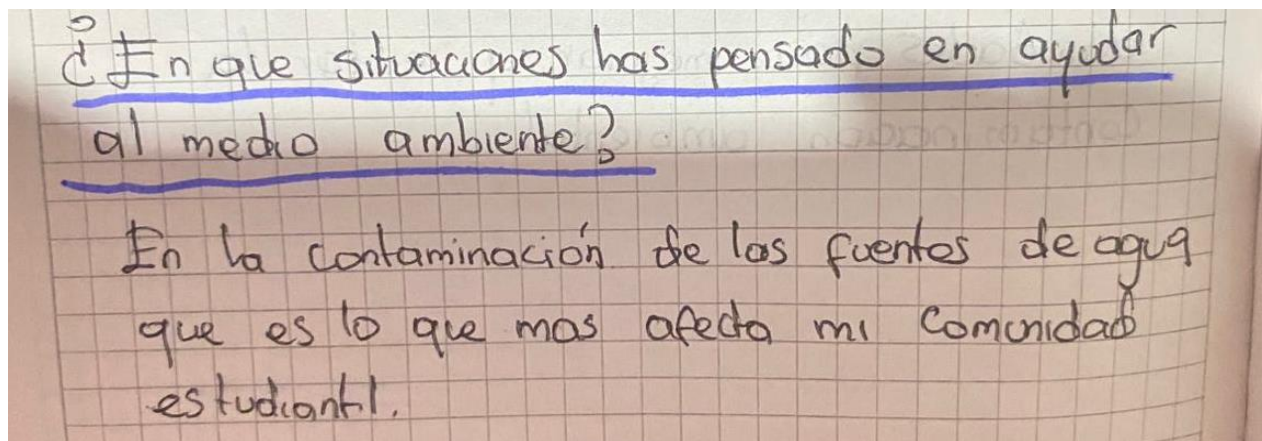 ¿En que situaciones has pensado en ayudar
al medio ambiente?
En la contaminación de las fuentes de agua
que es lo que mas afecta mi comunidad
estudiantil.